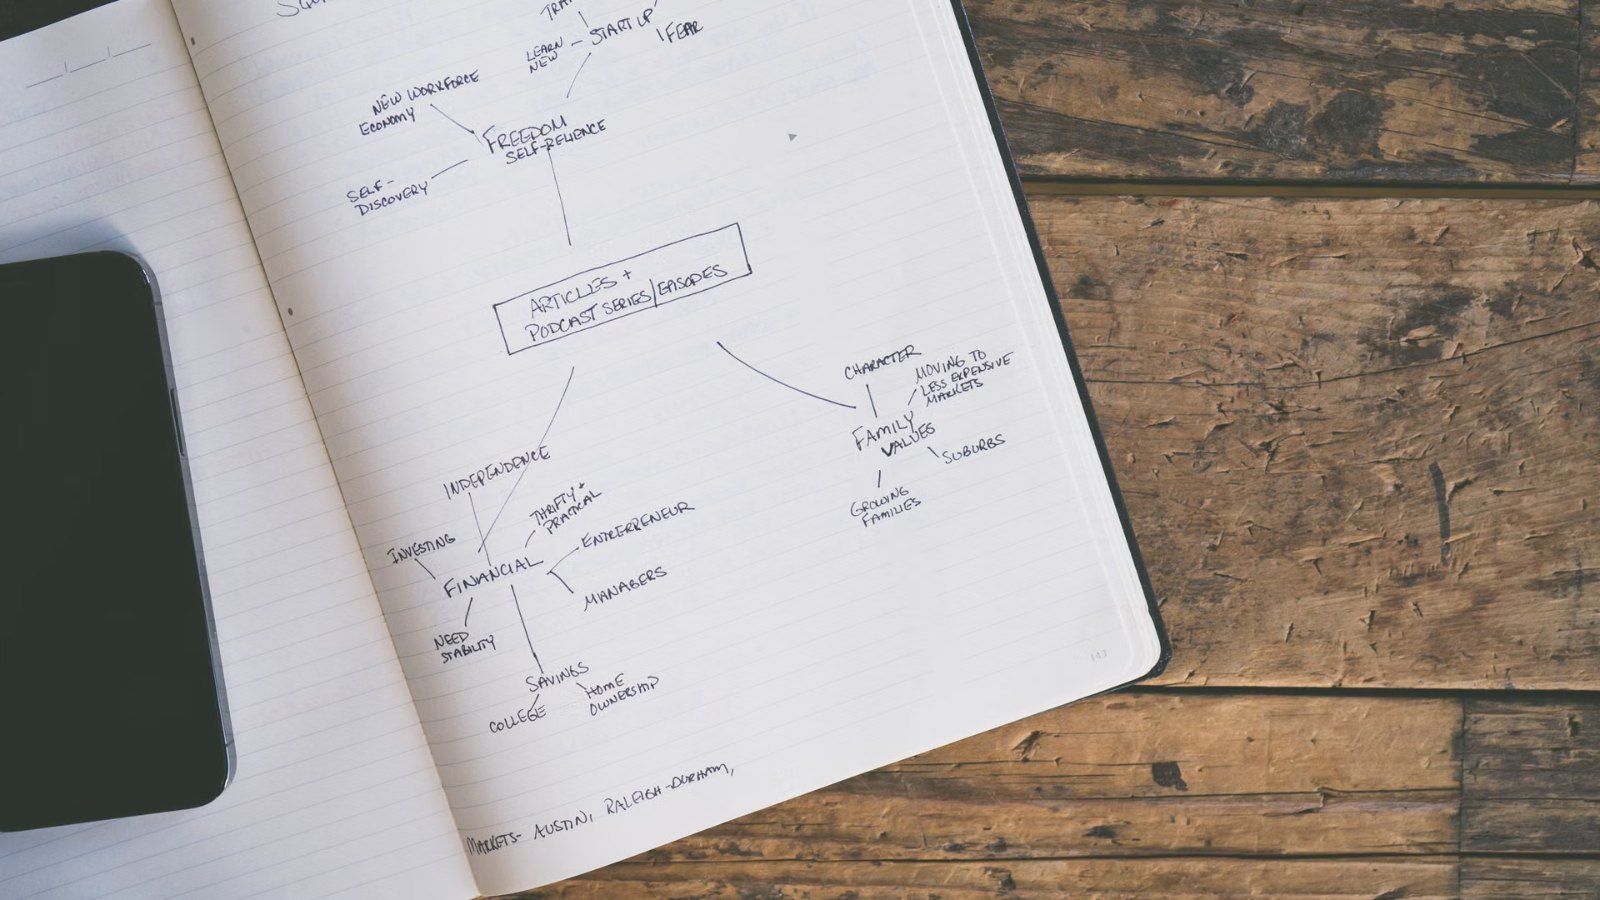 START UP
FEAR
LEARN
NEW
NEW WORKFORCE
ECONOMY
FREEDOM
SELF-RELIENCE
SELF-
DISCOVERY
ARTICLES +
PODCAST SERIES/EPISODES
CHARACTER
MOVING TO
LESS EXPENSIVE
MARKETS
FAMILY
VALUES
SUBURBS
GROWING
FAMILIES
INDEPENDENCE
THRIFTY +
PRACTICAL
ENTREPRENEUR
INVESTING
FINANCIAL
MANAGERS
NEED
STABILITY
SAVINGS
HOME
OWNERSHIP
COLLEGE
MARKETS- AUSTIN, RALEIGH-DURHAM,
143